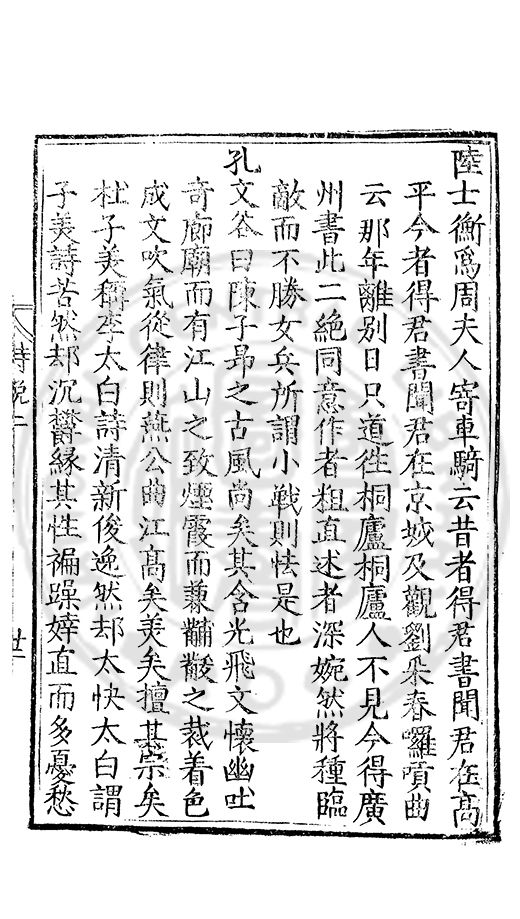 陸士衡為周夫人寄車騎云昔者得君書聞君在高
平今者得君書聞君在京城及觀劉采春囉嗊曲
云那年離別日只道往桐廬桐廬人不見今得廣
州書此二絕同意作者粗直述者深婉然將種臨
敵而不勝女兵所謂小戰則怯是也
孔文谷曰陳子昂之古風尚矣其含光飛文懷幽吐
奇廊廟而有江山之致煙霞而兼黼黻之裁着色
成文吹氣從律則燕公曲江高矣美矣擅其宗矣
杜子美稱李太白詩清新俊逸然却太快太白謂
子美詩苦然却沉鬱緣其性褊躁婞直而多憂愁
詩說二
世